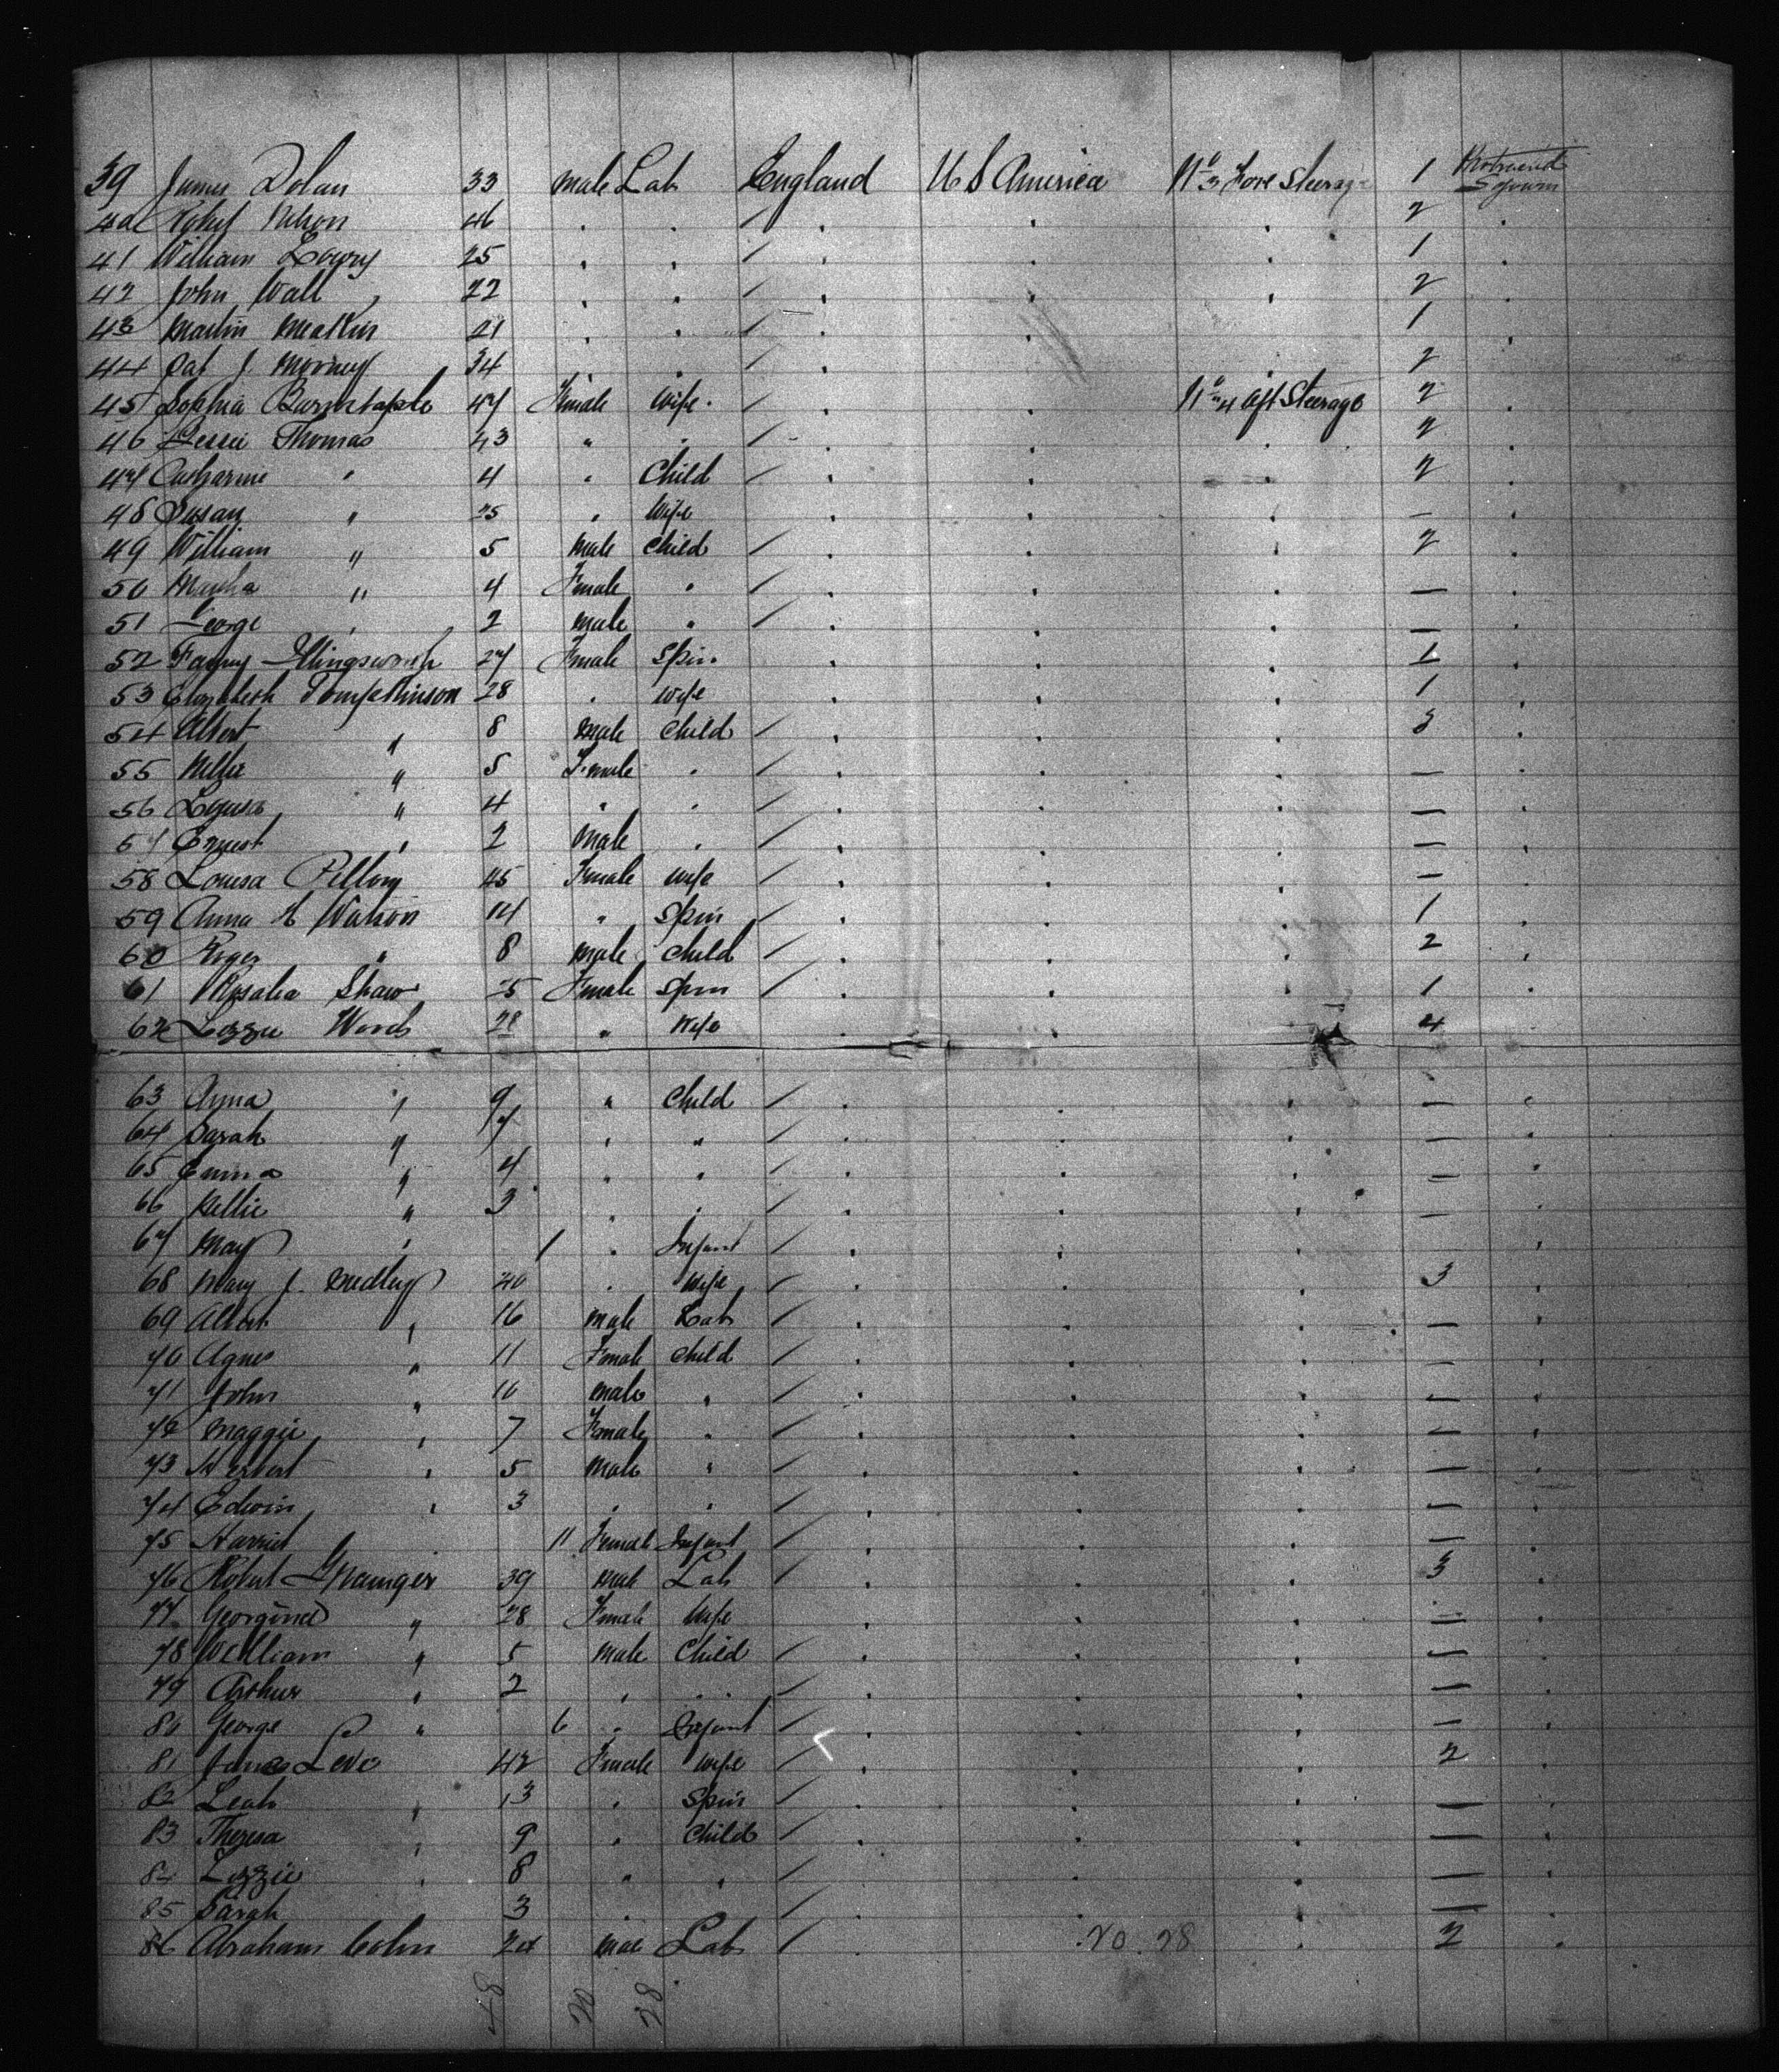 39 James Dolan 33 male Lab England U S America No 3 Fore Steerage 1 Protracted Sojourn
40 Robert Nelson 46 " " / " " " 2 "
41 William Lowry 25 " " / " " " 1 "
42 John Wall 22 " " / " " " 2 "
43 Martin Meakin 21 " " / " " " 1 "
44 Pat J. 34 " " / " " " 2 "
45 Sophia Barnstaple 47 Female Wife / " " No 4 Aft Steerage 2 "
46 Bessie Thomas 43 " " / " " " 2 "
47 Catharine " 4 " Child / " " " 2 "
48 Susan " 25 " Wife " " " — "
49 William " 5 male Child / " " " 2 "
50 Martha " 4 Female " / " " " — "
51 George " 2 male " / " " " — "
52 Fanny Illingsworth 27 Female Spin " " " 1 "
53 Elizabeth Tompkinson 28 " Wife " " " 1 "
54 Albert " 8 male Child / " " " 3 "
55 Nellie " 5 Female " / " " " — "
56 Louisa " 4 " " / " " " — "
57 Ernest " 2 male " / " " " — "
58 Louisa 45 Female Wife / " " " — "
59 Anna H Watson 14 " Spin / " " " 1 "
60 Roger " 8 male Child / " " " 2 "
61 Rosalia Shaw 25 Female Spin / " " " 1 "
62 Lizzie Woods 28 " Wife " " " 4
63 Anna " 9 " Child / " " " — "
64 Sarah " 7 " " / " " " — "
65 Emma " 4 " " / " " " — "
66 Nellie " 3 " " / " " " — "
67 May " 1 " Infant / " " " "
68 Mary J. Medley 40 " Wife / " " " 3 "
69 Albert " 16 male Lab / " " " — "
70 Agnes " 11 Female Child / " " " — "
71 John " 10 male " / " " " — "
72 Maggie " 7 Female " / " " " — "
73 Herbert " 5 male " / " " " — "
74 Edwin " 3 " " / " " " — "
75 Harriet 11 Female Infant / " " " — "
76 Robert Grainger 39 male Lab / " " " 3 "
77 Georgina " 28 Female Wife " " " — "
78 William " 5 male Child / " " " — "
79 Arthur " 2 " " / " " " — "
80 George " 6 " Infant / " " " — "
81 Levi 42 Female Wife / " " " 2 "
82 Leah " 13 " Spin / " " " — "
83 Theresa " 9 " Child / " " " — "
84 Lizzie " 8 " " / " " " — "
85 Sarah 3 " / " " " — "
86 Abraham Cohn 24 male Lab / " 20. 28 " 2 "
48 20 28